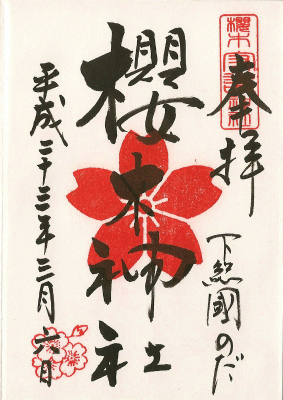 奉拝
下総國のだ
櫻木神社
平成二十三年三月六日